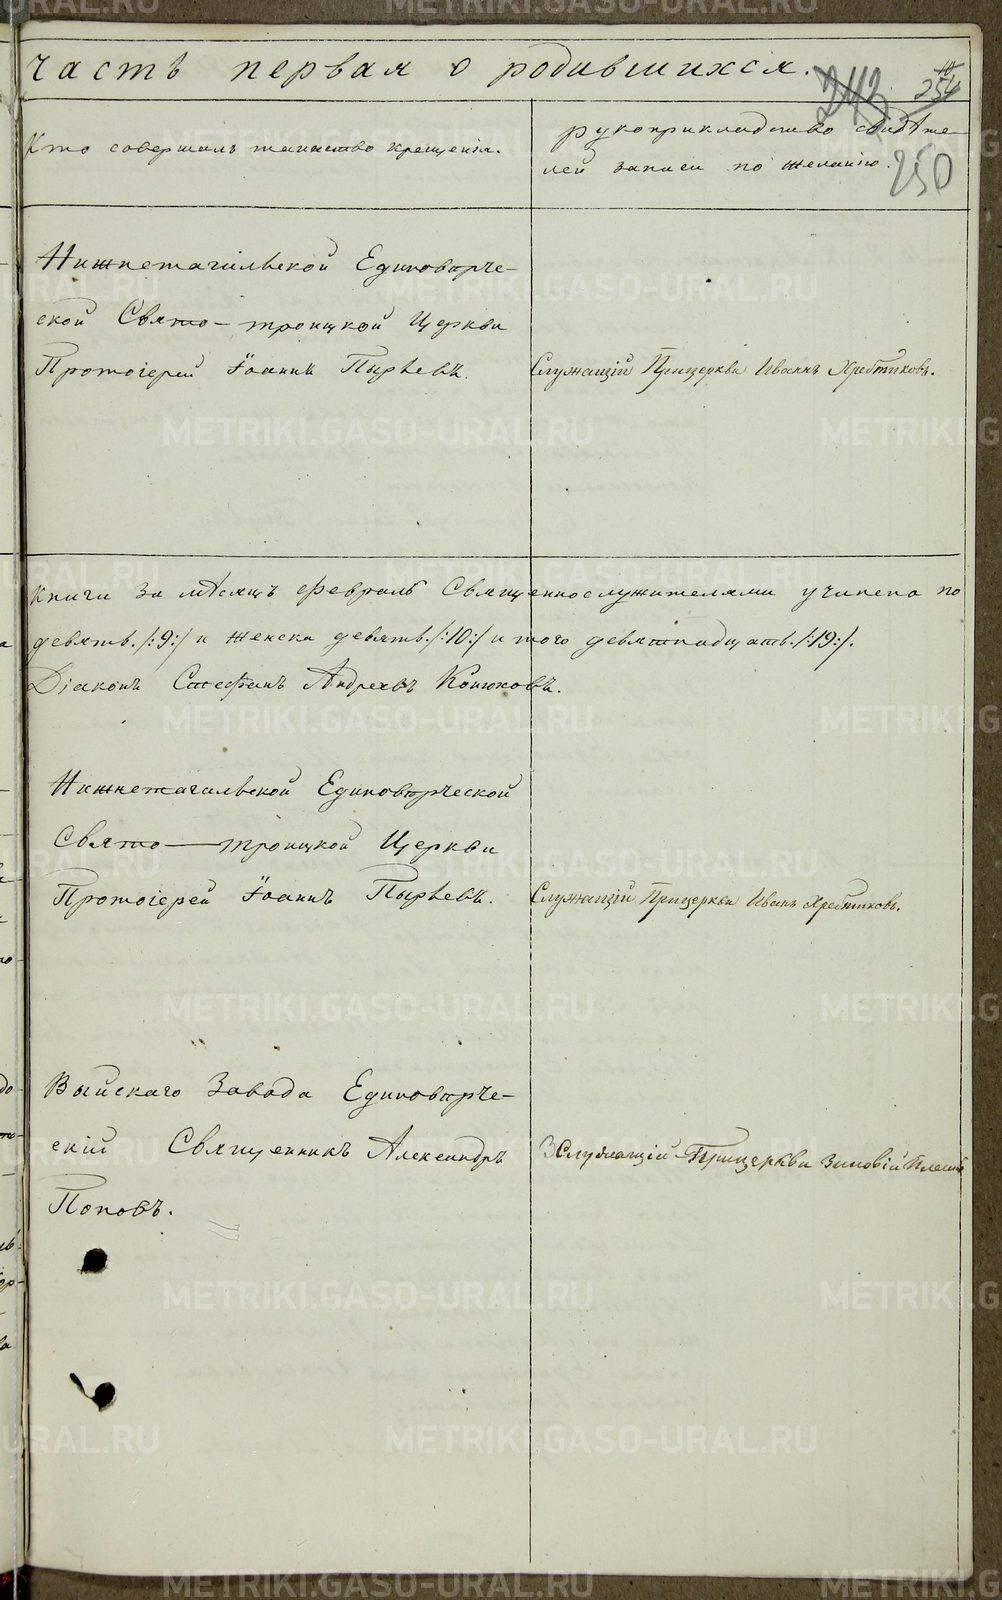 Часть первая о родившихся.
243
254
250
Кто совершалъ таинство крещенія.
рукоприкладство свидѣте-
лей записи по желанію.
Нижнетагильской Единовѣрче-
ской Свято-троицкой Церкви
Протоіерей Іоаннъ Пырьевъ.
Служащій Прицеркви Иванъ Хребтиковъ.
книги За мѣсяцъ февраль Священнослужителями учинена по
девять./:9:/ и Женска девять./:10:/ и того девятнадцать./:19:/.
Діаконъ Стефанъ Андреевъ Конюховъ.
Нижнетагильской Единовѣрческой
Свято-троицкой Церкви
Протоіерей Іоаннъ Пырьевъ.
Служащій Прицеркви Иванъ Хребтиковъ.
Выйскаго Завода Единовѣрче-
скій Священникъ Александръ
Поповъ.
Служащій Прицеркви Зиновій
METRIKI.GASO-URAL.RU